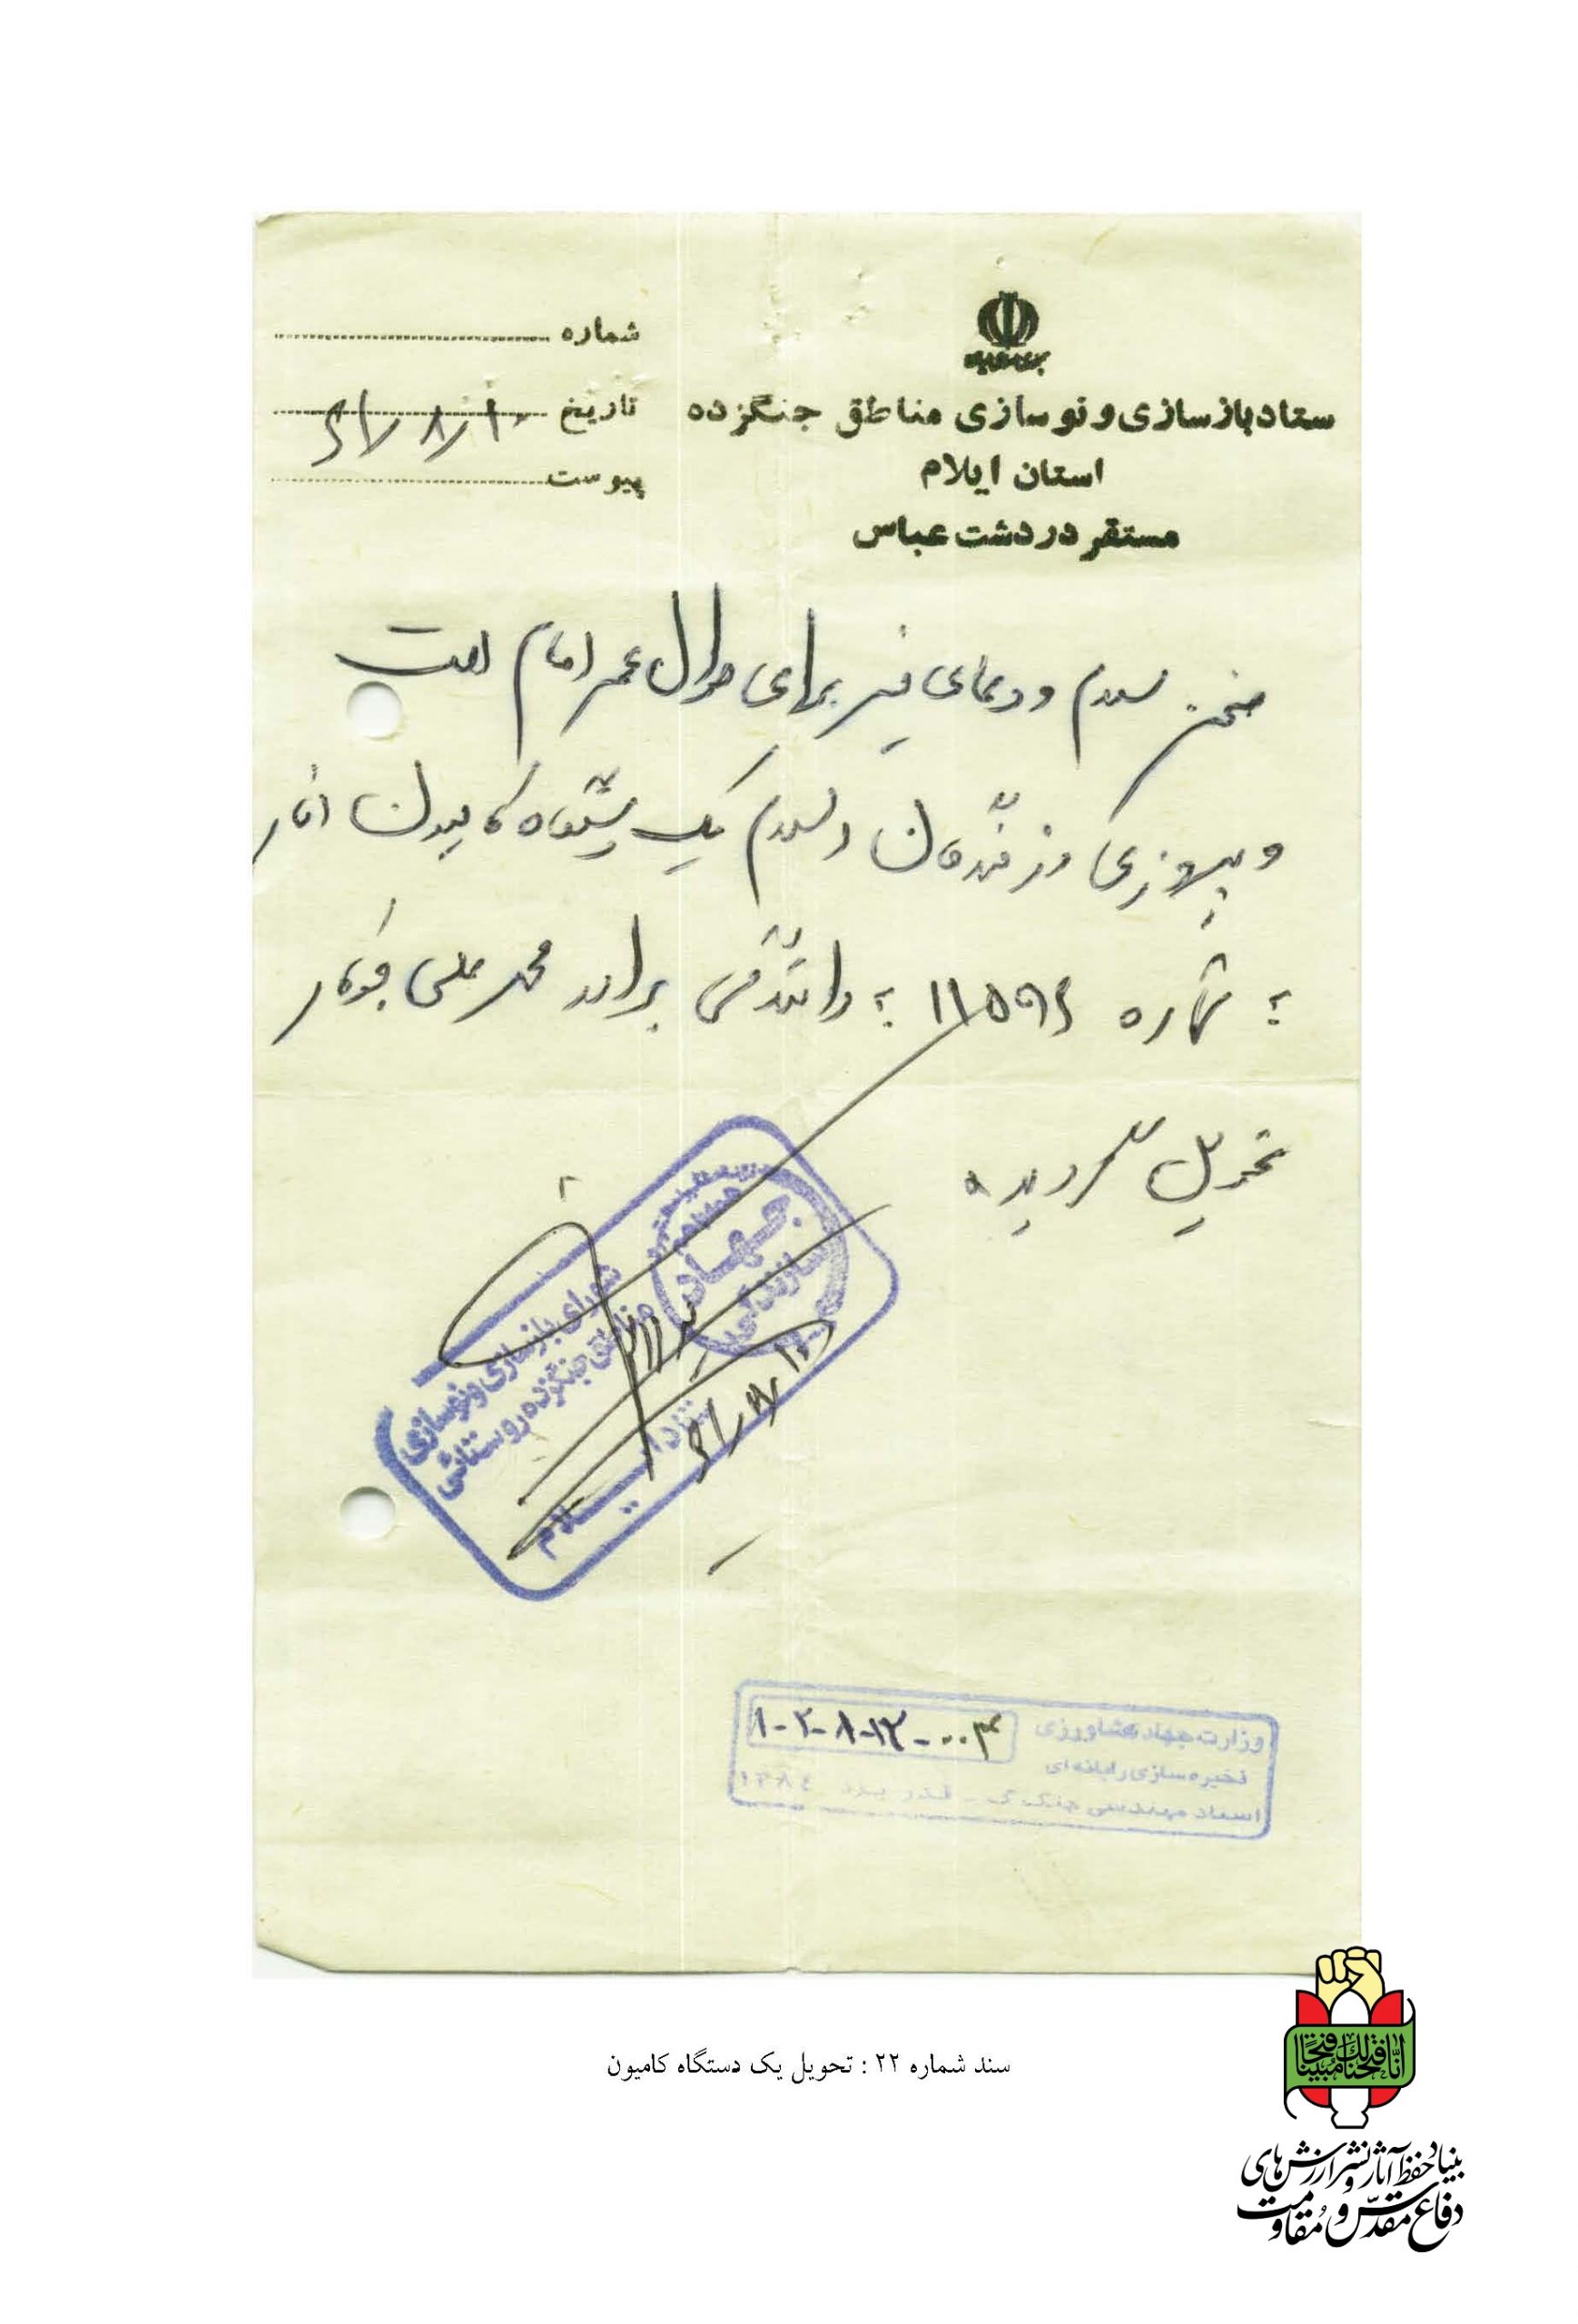 جمهوری اسلامی ایران
ستاد بازسازی و نوسازی مناطق جنگزده
استان ایلام
مستقر در دشت عباس
شماره
تاریخ ۶۱/۸/۱۰
پیوست
ضمن سلام و دعای خیر برای طول عمر امام امت
و پیروزی رزمندگان اسلام یک دستگاه کامیون
به شماره ۱۱۵۹۶ به رانندگی برادر محمد علی
تحویل گردید.
جهاد سازندگی
شورای بازسازی و نوسازی
مناطق جنگزده روستائی
ایلام
۶۱/۸/۱۰
وزارت جهاد کشاورزی
۱-۲-۸-۱۲-۰۰۳
ذخیره سازی رایانه ای
اسناد مهندسی جنگ ۱۳۸۴
سند شماره ۲۲ : تحویل یک دستگاه کامیون
انا فتحنا لک فتحا مبینا
بنیاد حفظ آثار و نشر ارزش‌های
دفاع مقدس و مقاومت